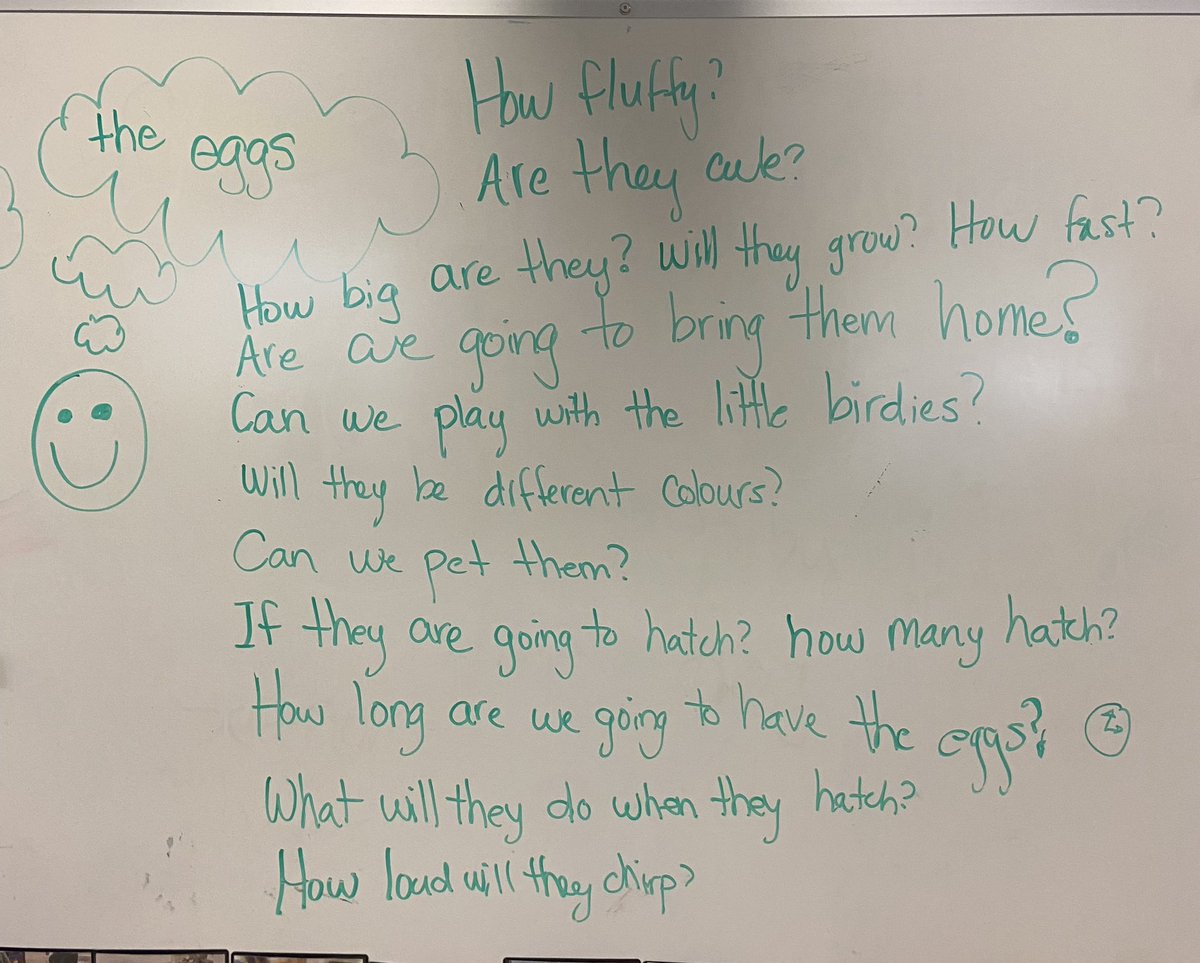 the eggs
How fluffy?
Are they cute?
How big are they? Will they grow? How fast?
Are we going to bring them home?
Can we play with the little birdies?
Will they be different colours?
Can we pet them?
If they are going to hatch? how many hatch?
How long are we going to have the eggs?
What will they do when they hatch?
How loud will they chirp?